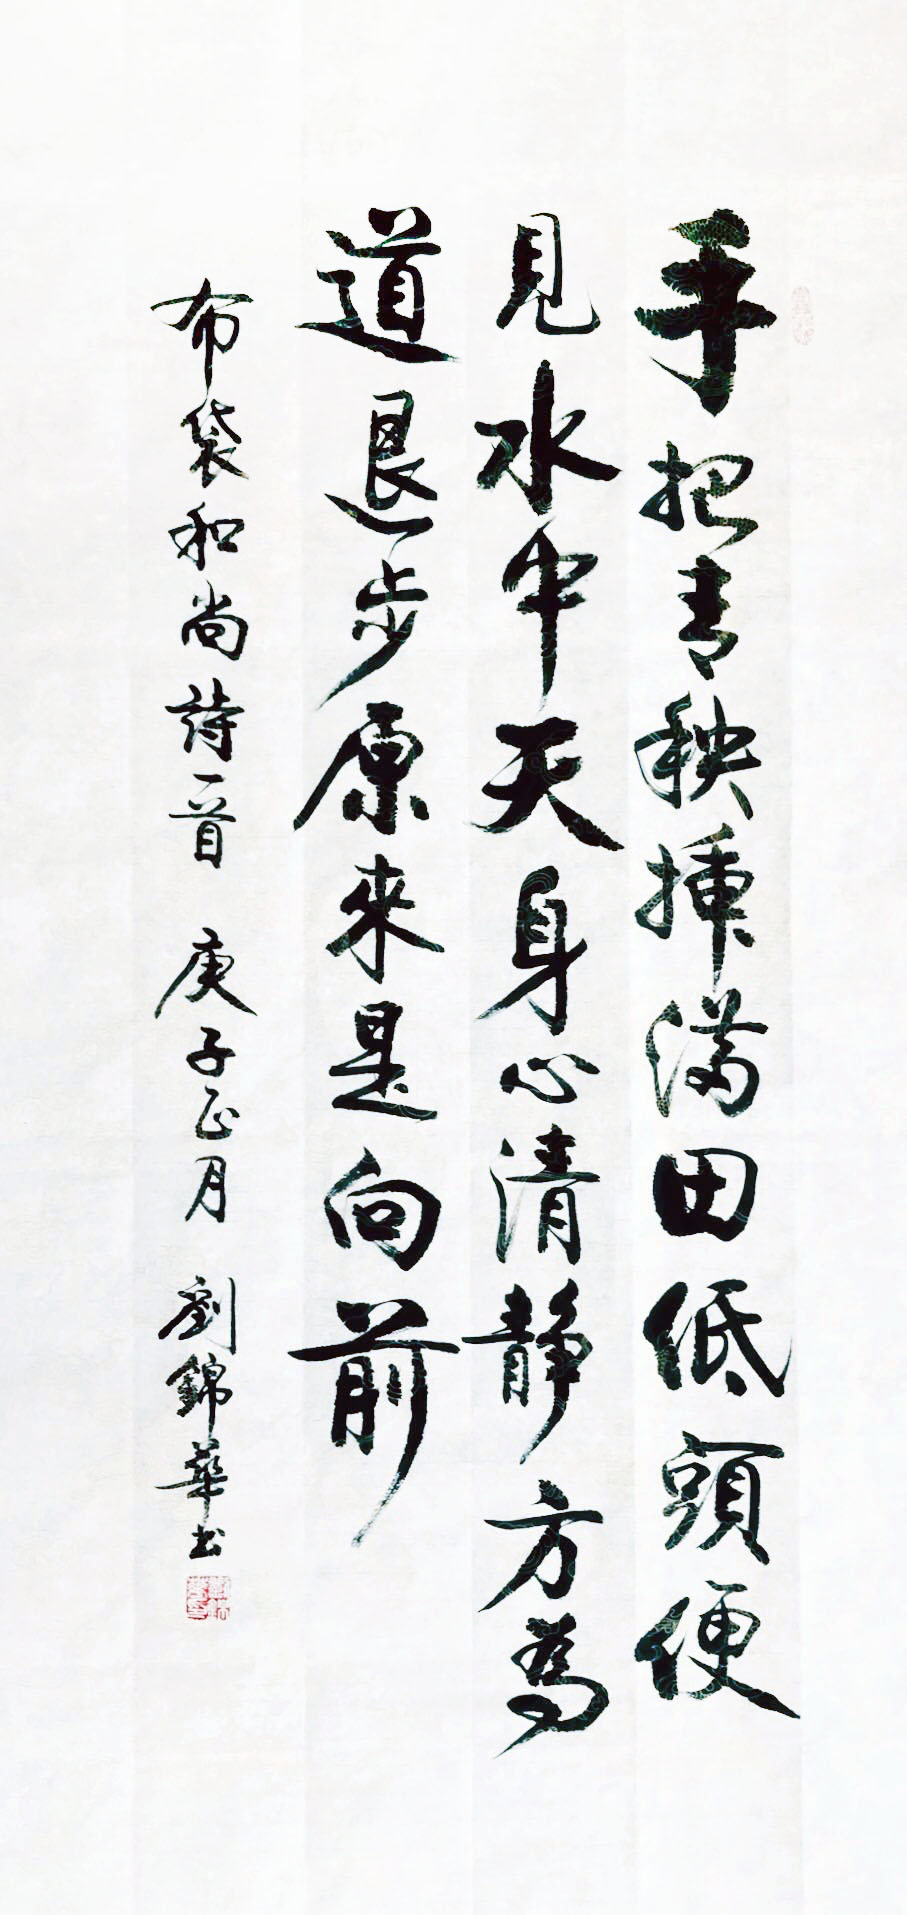 手把青秧插滿田低頭便
見水中天身心清靜方為
道退步原來是向前
布袋和尚詩一首 庚子正月 劉錦華书